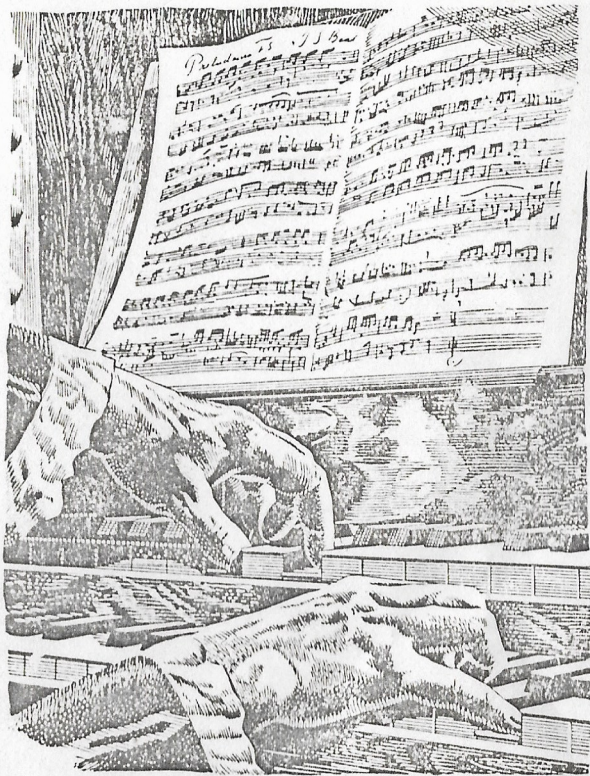 Preludium 13 J S Bach